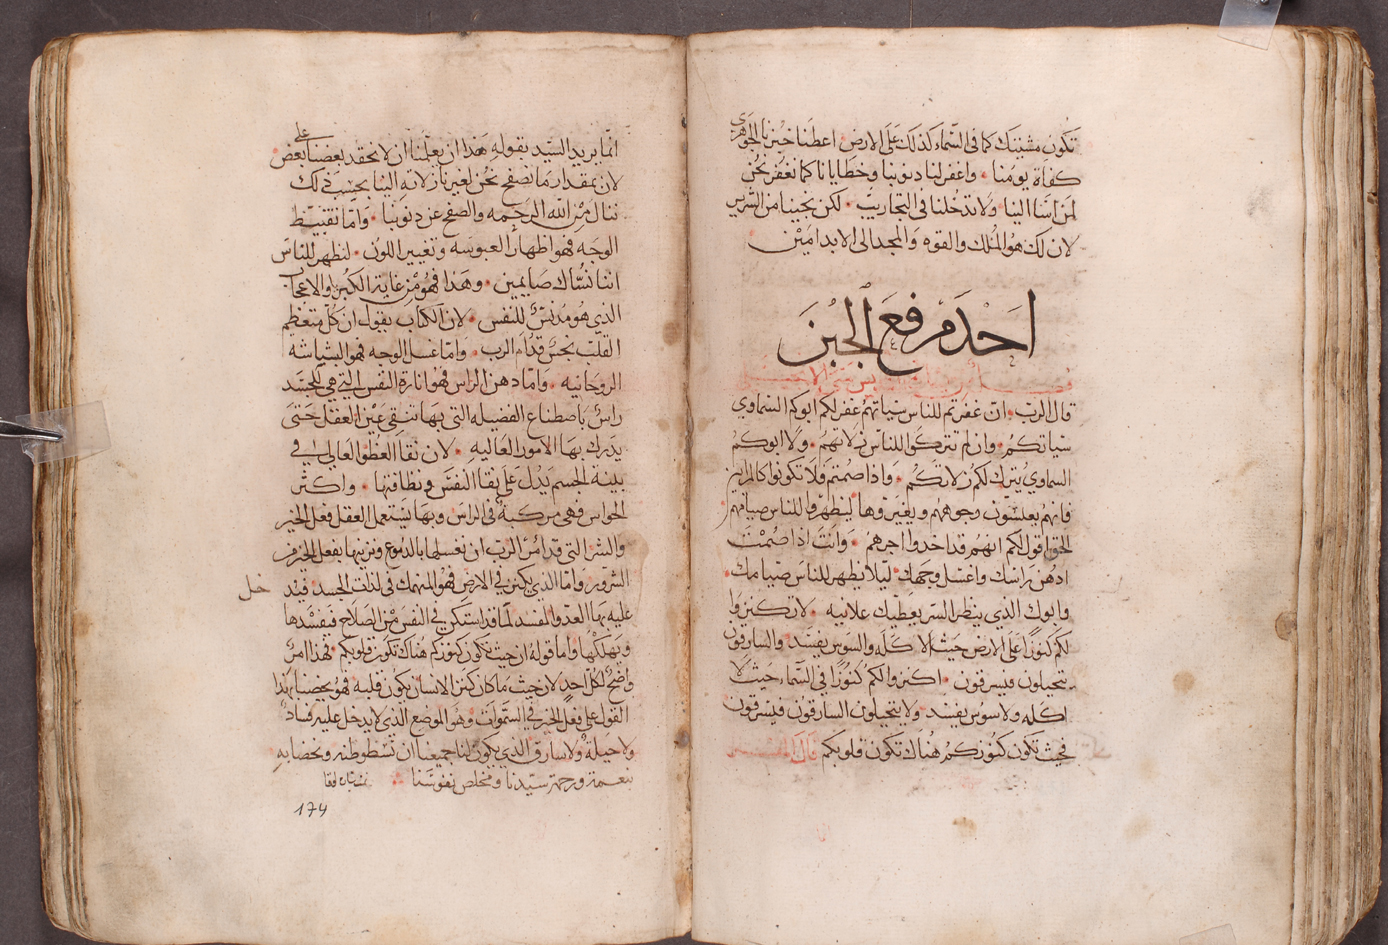 تكون مشيتك كما في السماء كذلك على الارض اعطنا خبزنا الجوهري
كفاة يومنا واغفر لنا دنوبنا وخطايانا كما نغفر نحن
لمن اسا الينا ولا تدخلنا في التجاريب لكن نجينا من الشرير
لان لك هو الملك والقوه والمجد الى الابد امين
احد مرفع الجبن
قال الرب ان غفرتم للناس سياتهم غفر لكم ابوكم السماوي
سياتكم وان لم تتركوا للناس زلاتهم ولا ابوكم
السماوي يترك لكم زلاتكم واذا صمتم فلا تكونوا كالمرايين
فانهم يعبسون وجوههم ويغيروها ليظهروا للناس صيامهم
الحق اقول لكم انهم قد اخدوا اجرهم وانت اذا صمت
ادهن راسك واغسل وجهك ليلا يظهر للناس صيامك
وابوك الذي ينظر السر يعطيك علانيه لا تكنزوا
لكم كنوزا على الارض حيث الاكله والسوس يفسد والسارقون
يتحيلون فيسرقون اكنزوا لكم كنوزا في السماء حيث لا
اكله ولا سوس يفسد ولا يتحيلون السارقون فيسرقون
فحيث تكون كنوزكم هناك تكون قلوبكم قال المفسر
انما يريد السيد بقوله هذا ان يعلمنا ان لا نحقد بعضنا على بعض
لان بمقدار ما نصفح نحن لغيرنا زلاته الينا بحسب ذلك
ننال من الله الرحمه والصفح عن دنوبنا واما تقنيط
الوجه فهو اظهار العبوسه وتغيير اللون لنظهر للناس
اننا نساك صايمين وهذا فهو من غاية الكبر والاعجاب
الذي هو مدنس للنفس لان الكتاب يقول ان كل متعظم
القلب نجس قدام الرب واما غسل الوجه فهو البشاشه
الروحانيه واما دهن الراس فهو انارة النفس التي هي للجسد
راس باصطناع الفضيله التي بها تنقى عين العقل حتى
يدرك بها الامور العاليه لان نقا العضو العالي في
بنية الجسم يدل على نقا النفس ونظافتها واكثر
الحواس فهي مركبة في الراس وبها يستعمل العقل فعل الخير
والشر التي قد امرنا الرب ان نغسلها بالدموع ونزينها بفعل الخير
الشرور واما الذي يكنز في الارض فهو المنهمك في لذات الجسد فيدخل
عليه بها العدو المفسد لما قد استكن في النفس من الصلاح فيفسدها
ويهلكها واما قوله ان حيث تكون كنوزكم هناك تكون قلوبكم فهذا امر
واضح لكل احد لان حيث ما كان كنز الانسان يكون قلبه فهو يحضنا بهذا
القول على فعل الخير في السموات وهو الموضع الذي لا يدخل عليه فساد
ولا حيلة ولا سارق الذي يكون لنا جميعنا ان
بنعمة ورحمة سيدنا ومخلص نفوسنا
174